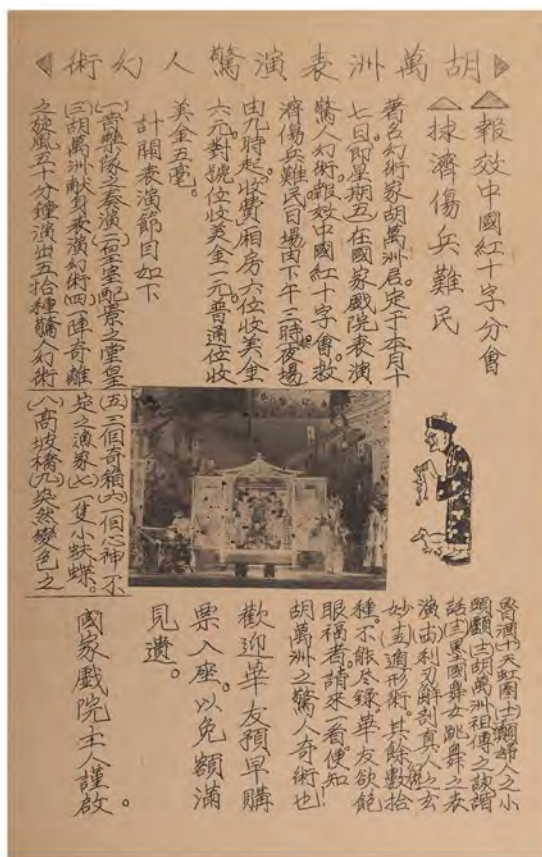 胡萬洲表演驚人幻術
報效中國紅十字分會
捄濟傷兵難民
著名幻術家胡萬洲君。定于本月十
七日(即星期五)在國家戲院表演
驚人幻術。報效中國紅十字會。救
濟傷兵難民日場由下午三時。夜場
由九時起。收費廂房六位收美金
六元。對號位收美金一元。普通位收
美金五毫。
計開表演節目如下
(一)音樂隊之奏演(二)皇室配景之堂皇
(三)胡萬洲献身表演幻術(四)一陣奇離
之旋風五十分鐘演出五拾種驚人幻術
(五)三個奇箱(六)一個心神不
定之漁家(七)一隻小蚨蝶。
(八)高坡橋(九)然變色之
酒(十)天虹圈(十一)婦人之小
頭顱(十二)胡萬洲祖傳之詼諧
話(十三)墨國舞女跳舞之表
演(十四)利刃解剖真人之玄
妙(十五)遁形術。其餘數拾
種。不能尽錄華友欲飽
眼福者。請來一看便知
胡萬洲之驚人奇術也!
歡迎華友預早購
票入座。以免額滿
見遺。
國家戲院主人謹啟。